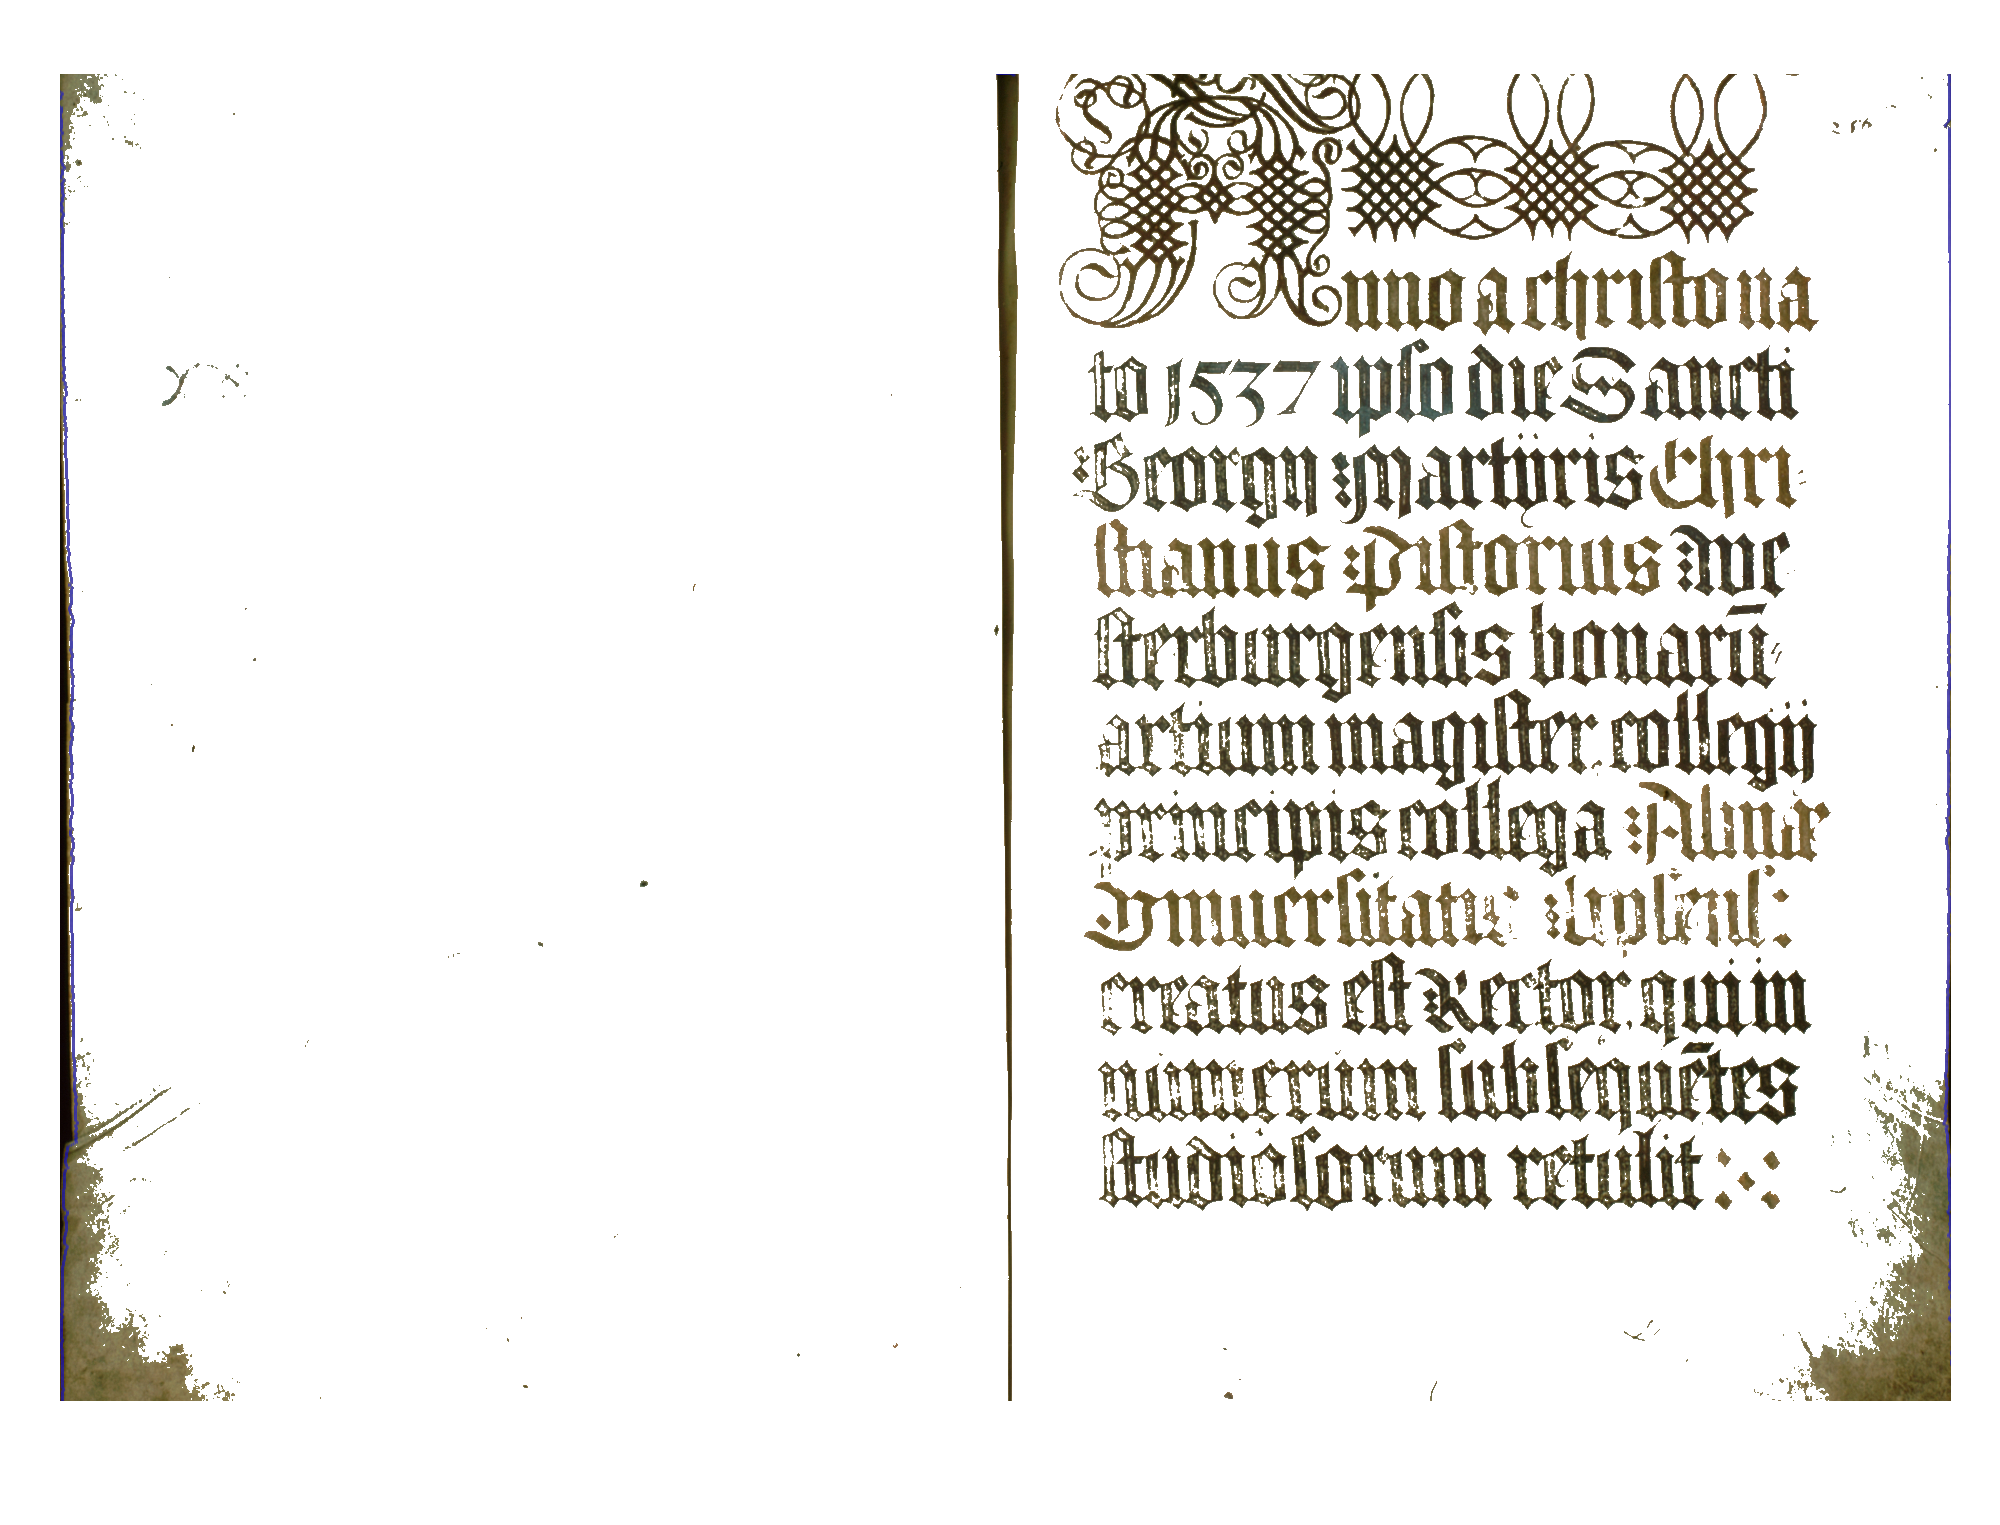 Anno a christo na
to 1537 ipso die Sancti
Georgii Martÿris Chri
stianus Pistorius We
sterburgensis bonarū
artium magister collegij
principis collega Almæ
Vniuersitatis Lipsens:
creatus est Rector qui in
numerum subsequētes
studiosorum retulit